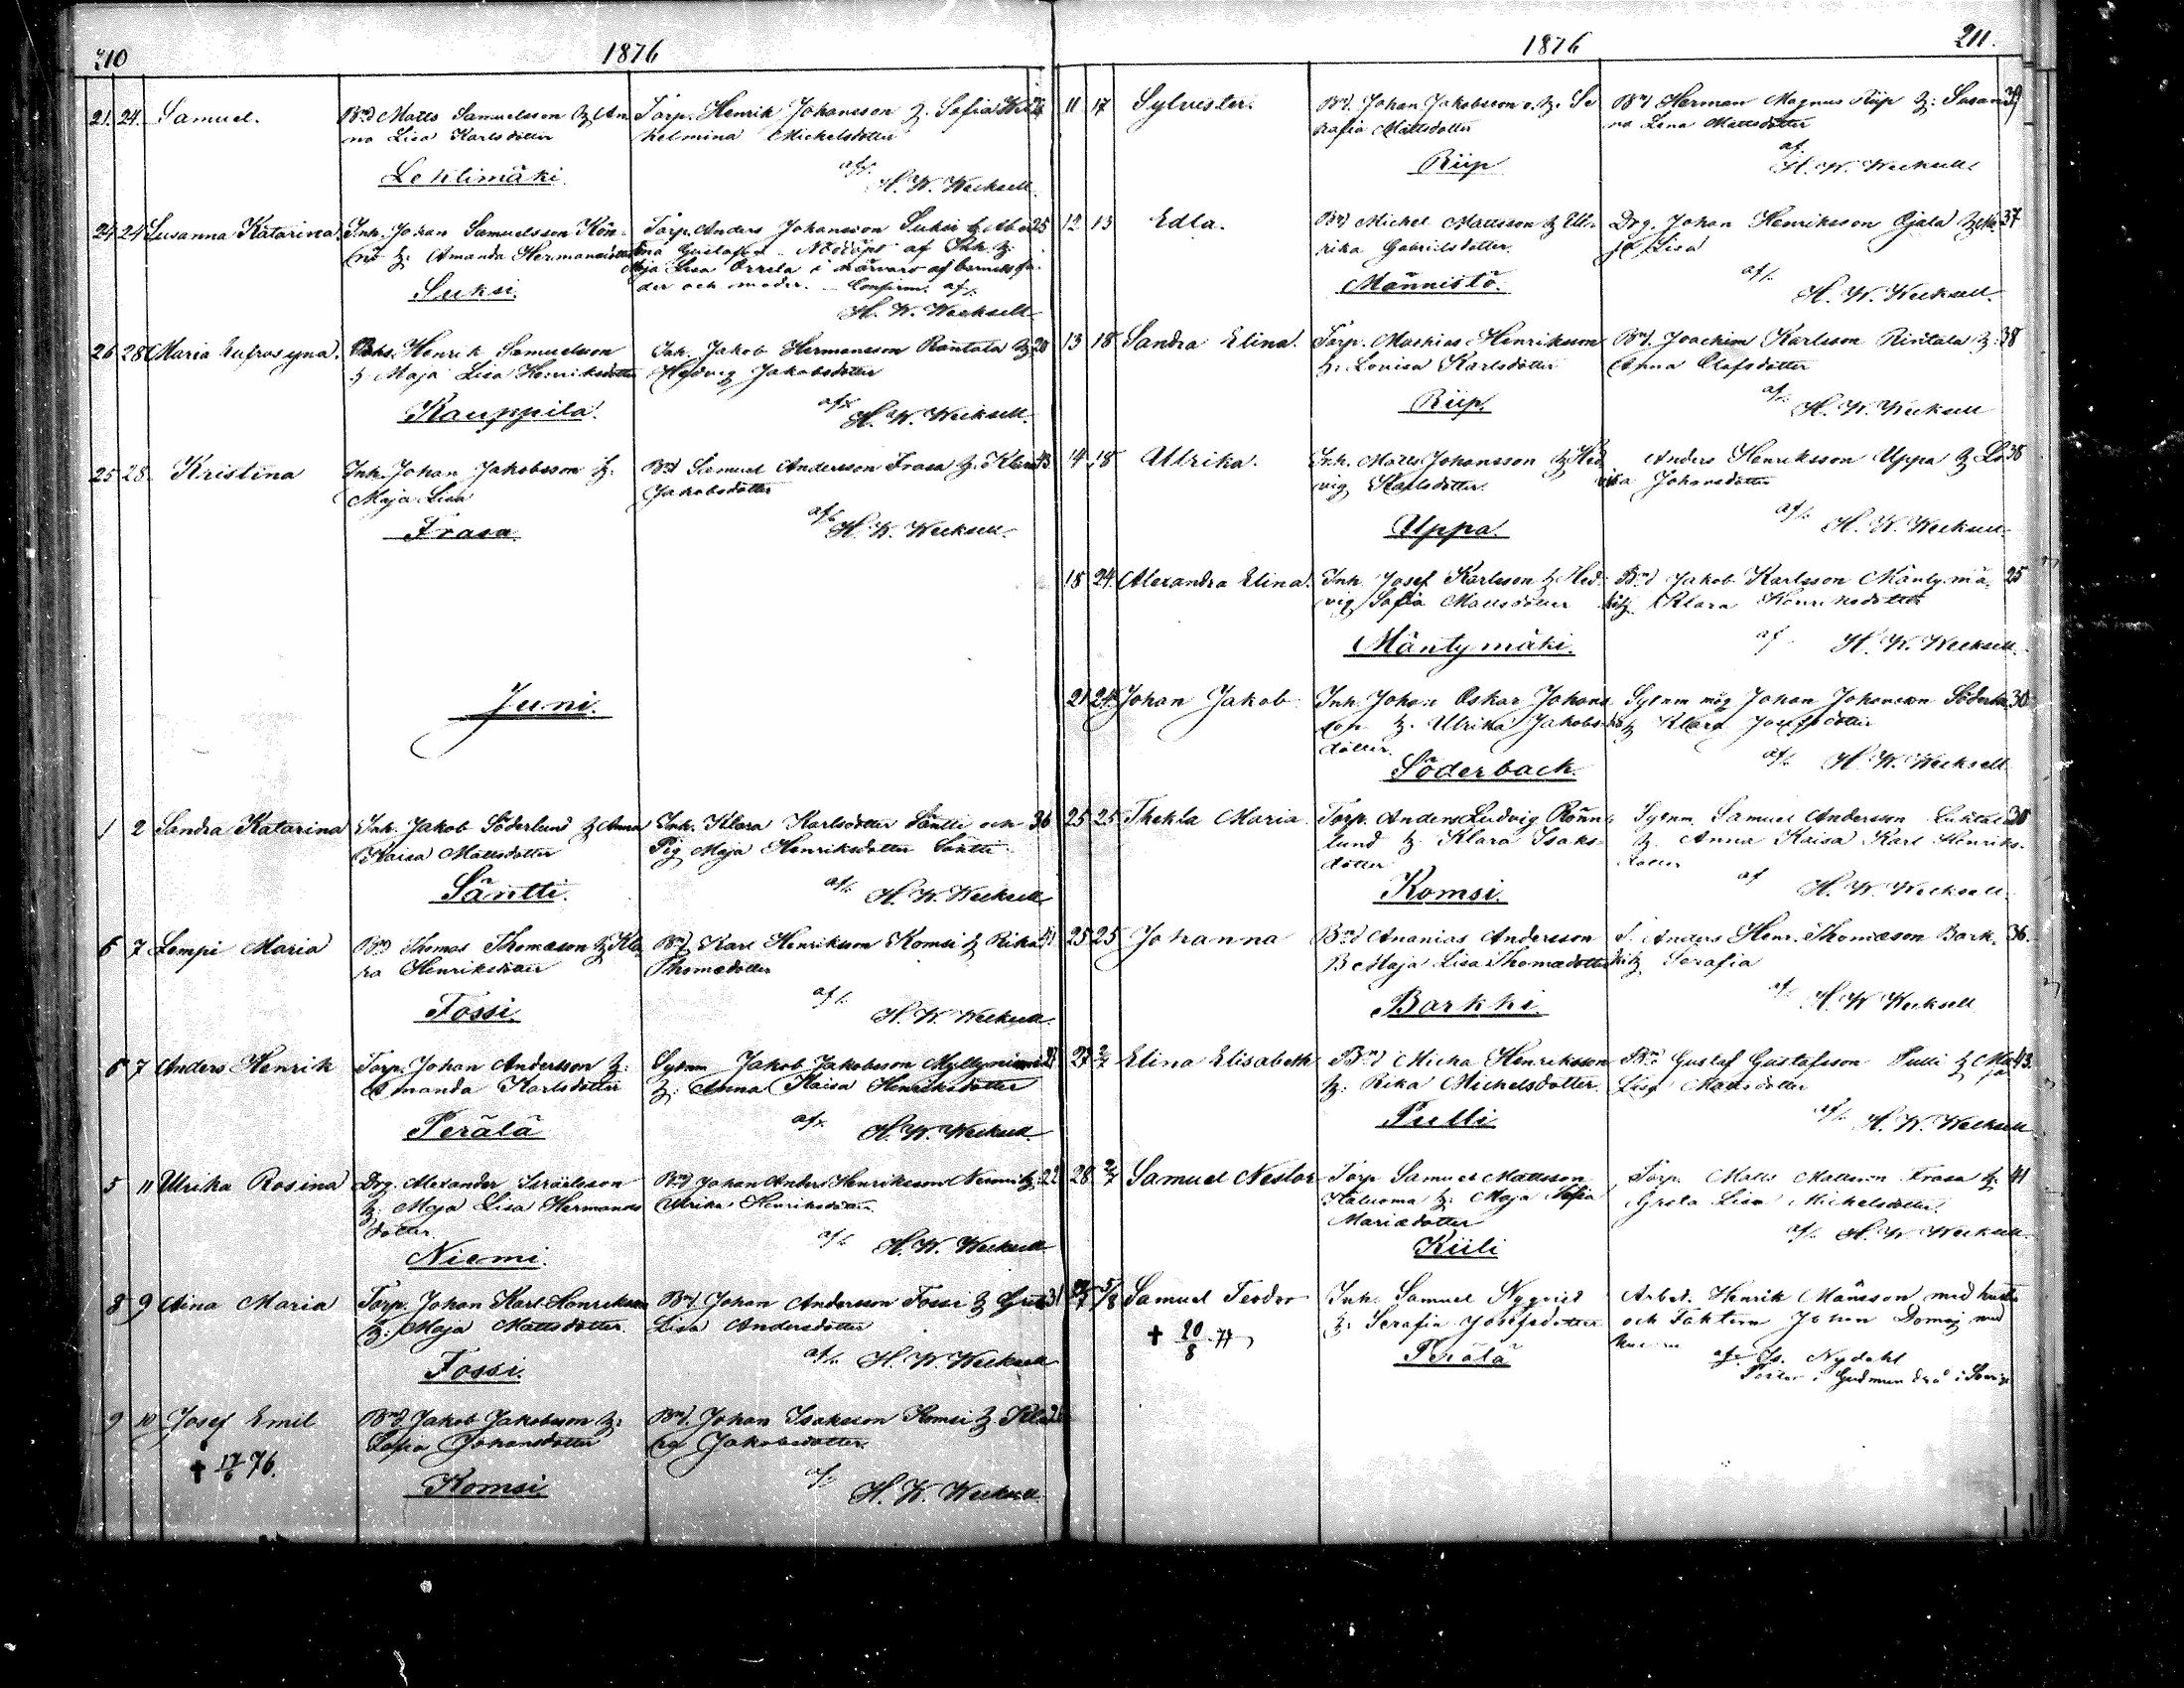 210
1876
21. 24. Samuel.
Bd Matts Samuelsson & An
na Lisa Karlsdotter
Lehtimäki
Torp. Henrik Johansson & Sofia
helmina Mickelsdotter
af/.
H. W. Wecksell
24 24 Susanna Katarina.
Inh. Johan Samuelsson
& Amanda Hermansdotter
Suksi.
Torp. Anders Johansson Suksi & 25
Gustafsd. Nöddöpt af Inh. &
Maja Lisa Orrela i närvaro af barnets fa
der och moder. Confirm. af/.
H. W. Wecksell
26 28 Maria Eufrosyna.
Henrik Samuelsson
& Maja Lisa Henriksdotter
Kauppila.
Inh. Jakob Hermansson Rantala &
Hedvig Jakobsdotter
af/.
H. W. Wecksell.
25 28 Kristina
Inh. Johan Jakobsson &
Maja Lisa
Frasa.
Bd Samuel Andersson Frasa & Klara
Jakobsdotter
af/.
H. W. Wecksell.
Juni.
1 2 Sandra Katarina
Inh. Jakob Söderlund & Anna
Kaisa Mattsdotter
Säntti.
Inh. Klara Karlsdotter Säntti och 36
Pig. Maja Henriksdotter Säntti
af/.
H. W. Wecksell
6 7 Lempi Maria
Bd Thomas Thomasson & Kla
ra Henriksdotter
Fossi.
Bd Karl Henriksson Komsi & Rika
Thomasdotter
af/.
H. W. Wecksell
6 7 Anders Henrik
Torp. Johan Andersson &
Amanda Karlsdotter
Perälä
Sytnm Jakob Jakobsson Myllyniemi
& Anna Kaisa Henriksdotter
af/.
H. W. Wecksell
5 11 Ulrika Rosina
Drg. Alexander Israelsson
& Maja Lisa Hermans
dotter
Niemi.
Bd Johan Anders Henriksson Niemi & 22
Ulrika Henriksdotter
af/.
H. W. Wecksell
8 9 Aina Maria
Torp. Johan Karl Henriksson
& Maja Mattsdotter.
Fossi.
Bd Johan Andersson Fossi & Greta
Lisa Andersdotter
af/.
H. W. Wecksell
9 10 Josef Emil
✝ 17/6 76.
Bd. Jakob Jakobsson &
Sofia Johansdotter
Komsi
Bd. Johan Isaksson Komsi & Kla
ra Jakobsdotter.
af/.
H. W. Wecksell.
1876
211.
11 17 Sylvester.
Bd. Johan Jakobsson o. & Se
rafia Mattsdotter
Riip
Bd Herman Magnus Riip & Susan
na Lena Mattsdotter
af.
H. W. Wecksell
12 13 Edla.
Bd Michel Mattsson & Ell
rika Gabrielsdotter.
Männistö.
Drg. Johan Henriksson Ojala & Ma 37
ja Lisa
af/.
H. W. Wecksell.
13 18 Sandra Elina.
Torp. Mathias Henriksson
& Lovisa Karlsdotter
Riip.
Bd. Joachim Karlsson Rintala & 38
Anna Olofsdotter
af/.
H. W. Wecksell
14 18 Ulrika.
Inh. Matts Johansson & Hed
vig Karlsdotter.
Uppa.
Anders Henriksson Uppa & Lo 38
visa Johansdotter
af/.
H. W. Wecksell
18 24 Alexandra Elina.
Inh. Josef Karlsson & Hed
vig Sofia Mattsdotter
Mäntymäki.
Bd Jakob Karlsson Mäntymä 25
ki & Klara Henriksdotter
af
H. W. Wecksell.
21 24 Johan Jakob
Inh. Johan Oskar Johans
son & Ulrika Jakobs
dotter.
Söderback.
Sytnm måg Johan Johansson Söderba 30
ck & Klara Josefsdotter
af/.
H. W. Wecksell
25 25 Thekla Maria
Torp. Anders Ludvig Rönn
lund & Klara Isaks
dotter
Komsi.
Sytnm. Samuel Andersson
& Anna Kaisa Karl Henriks
dotter
af
H. W. Wecksell.
25 25 Johanna
Bd Ananias Andersson
& Maja Lisa Thomasdotter
Barkki.
Anders Henr. Thomasson Bark 36.
ki & Serafia
af.
H. W. Wecksell
27 2/7 Elina Elisabeth
Bd Micha Henriksson
& Rika Michelsdotter.
Pulli
Bd Gustaf Gustafsson Pulli & Ma 43.
ja Lisa Mattsdotter
af/.
H. W. Wecksell
28 2/7 Samuel Nestor
Torp Samuel Mattsson
& Maja Sofia
Mariadotter
Kiili
Torp. Matts Mattsson Frasa & 41
Greta Lisa Michelsdotter.
af/. H. W. Wecksell.
5/8 Samuel Teodor
✝ 20/8 77
Inh. Samuel Nygvist
& Serafia Josefsdotter
Perälä
Arbet. Henrik Månsson med hustru
och Faktorn Johan Domeij med
hustru
af Is. Nydahl
Pastor i Gudmundrå i Sverige